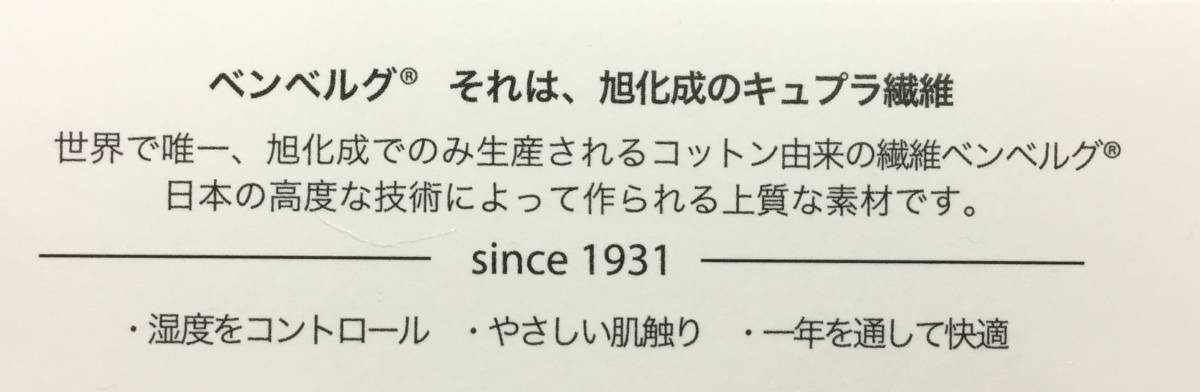 ベンベルグ® それは、旭化成のキュプラ繊維
世界で唯一、旭化成でのみ生産されるコットン由来の繊維ベンベルグ®
日本の高度な技術によって作られる上質な素材です。
since 1931
・湿度をコントロール ・やさしい肌触り ・一年を通して快適